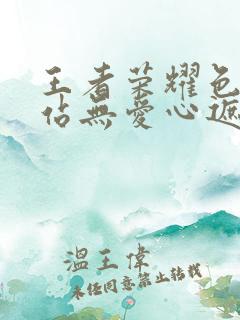 王者荣耀色
佔無愛心遮
溫王偉
未经同意禁止转载